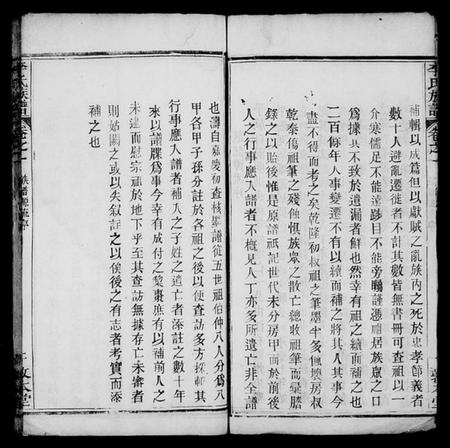 補輯以成篇但以獻賊之亂族丙之死於忠孝節義者
數十人避亂遷徙者不計其數皆無書冊可查祖以一
介寒儒足不能達跡目不能旁矚謹憑禰居族眾之口
為據其不致於遺漏者鮮也然幸有祖之續而補之也
二百餘年人事變遷不有以續而補之將其人其事今
盡不得而考之矣乾隆初叔祖之筆墨半多佩墺房叔
乾泰傷祖筆之殘蝕惧族眾之散亡總收祖筆而彙謄
之以貽後惟是原譜祇記世代未分房甲而於前後
人之行事應入譜者不概見人丁亦多所遺亡非全譜
也濤自嘉慶初查核譜從五世祖伯仲八人分為八
甲各甲子孫分註於各祖之後以便查訪多方採輯其
行事應入譜者補入之子姓之遺亡者添註之數十年
來以譜牒為事今幸有成付之棗棗庶有以補前人之
未逮而慰宗祖於地下乎至其查訪無據存亡未審者
則姑闕之或以失叙註之以俟後之有志者考實而添
補之也
李氏族譜
卷之一